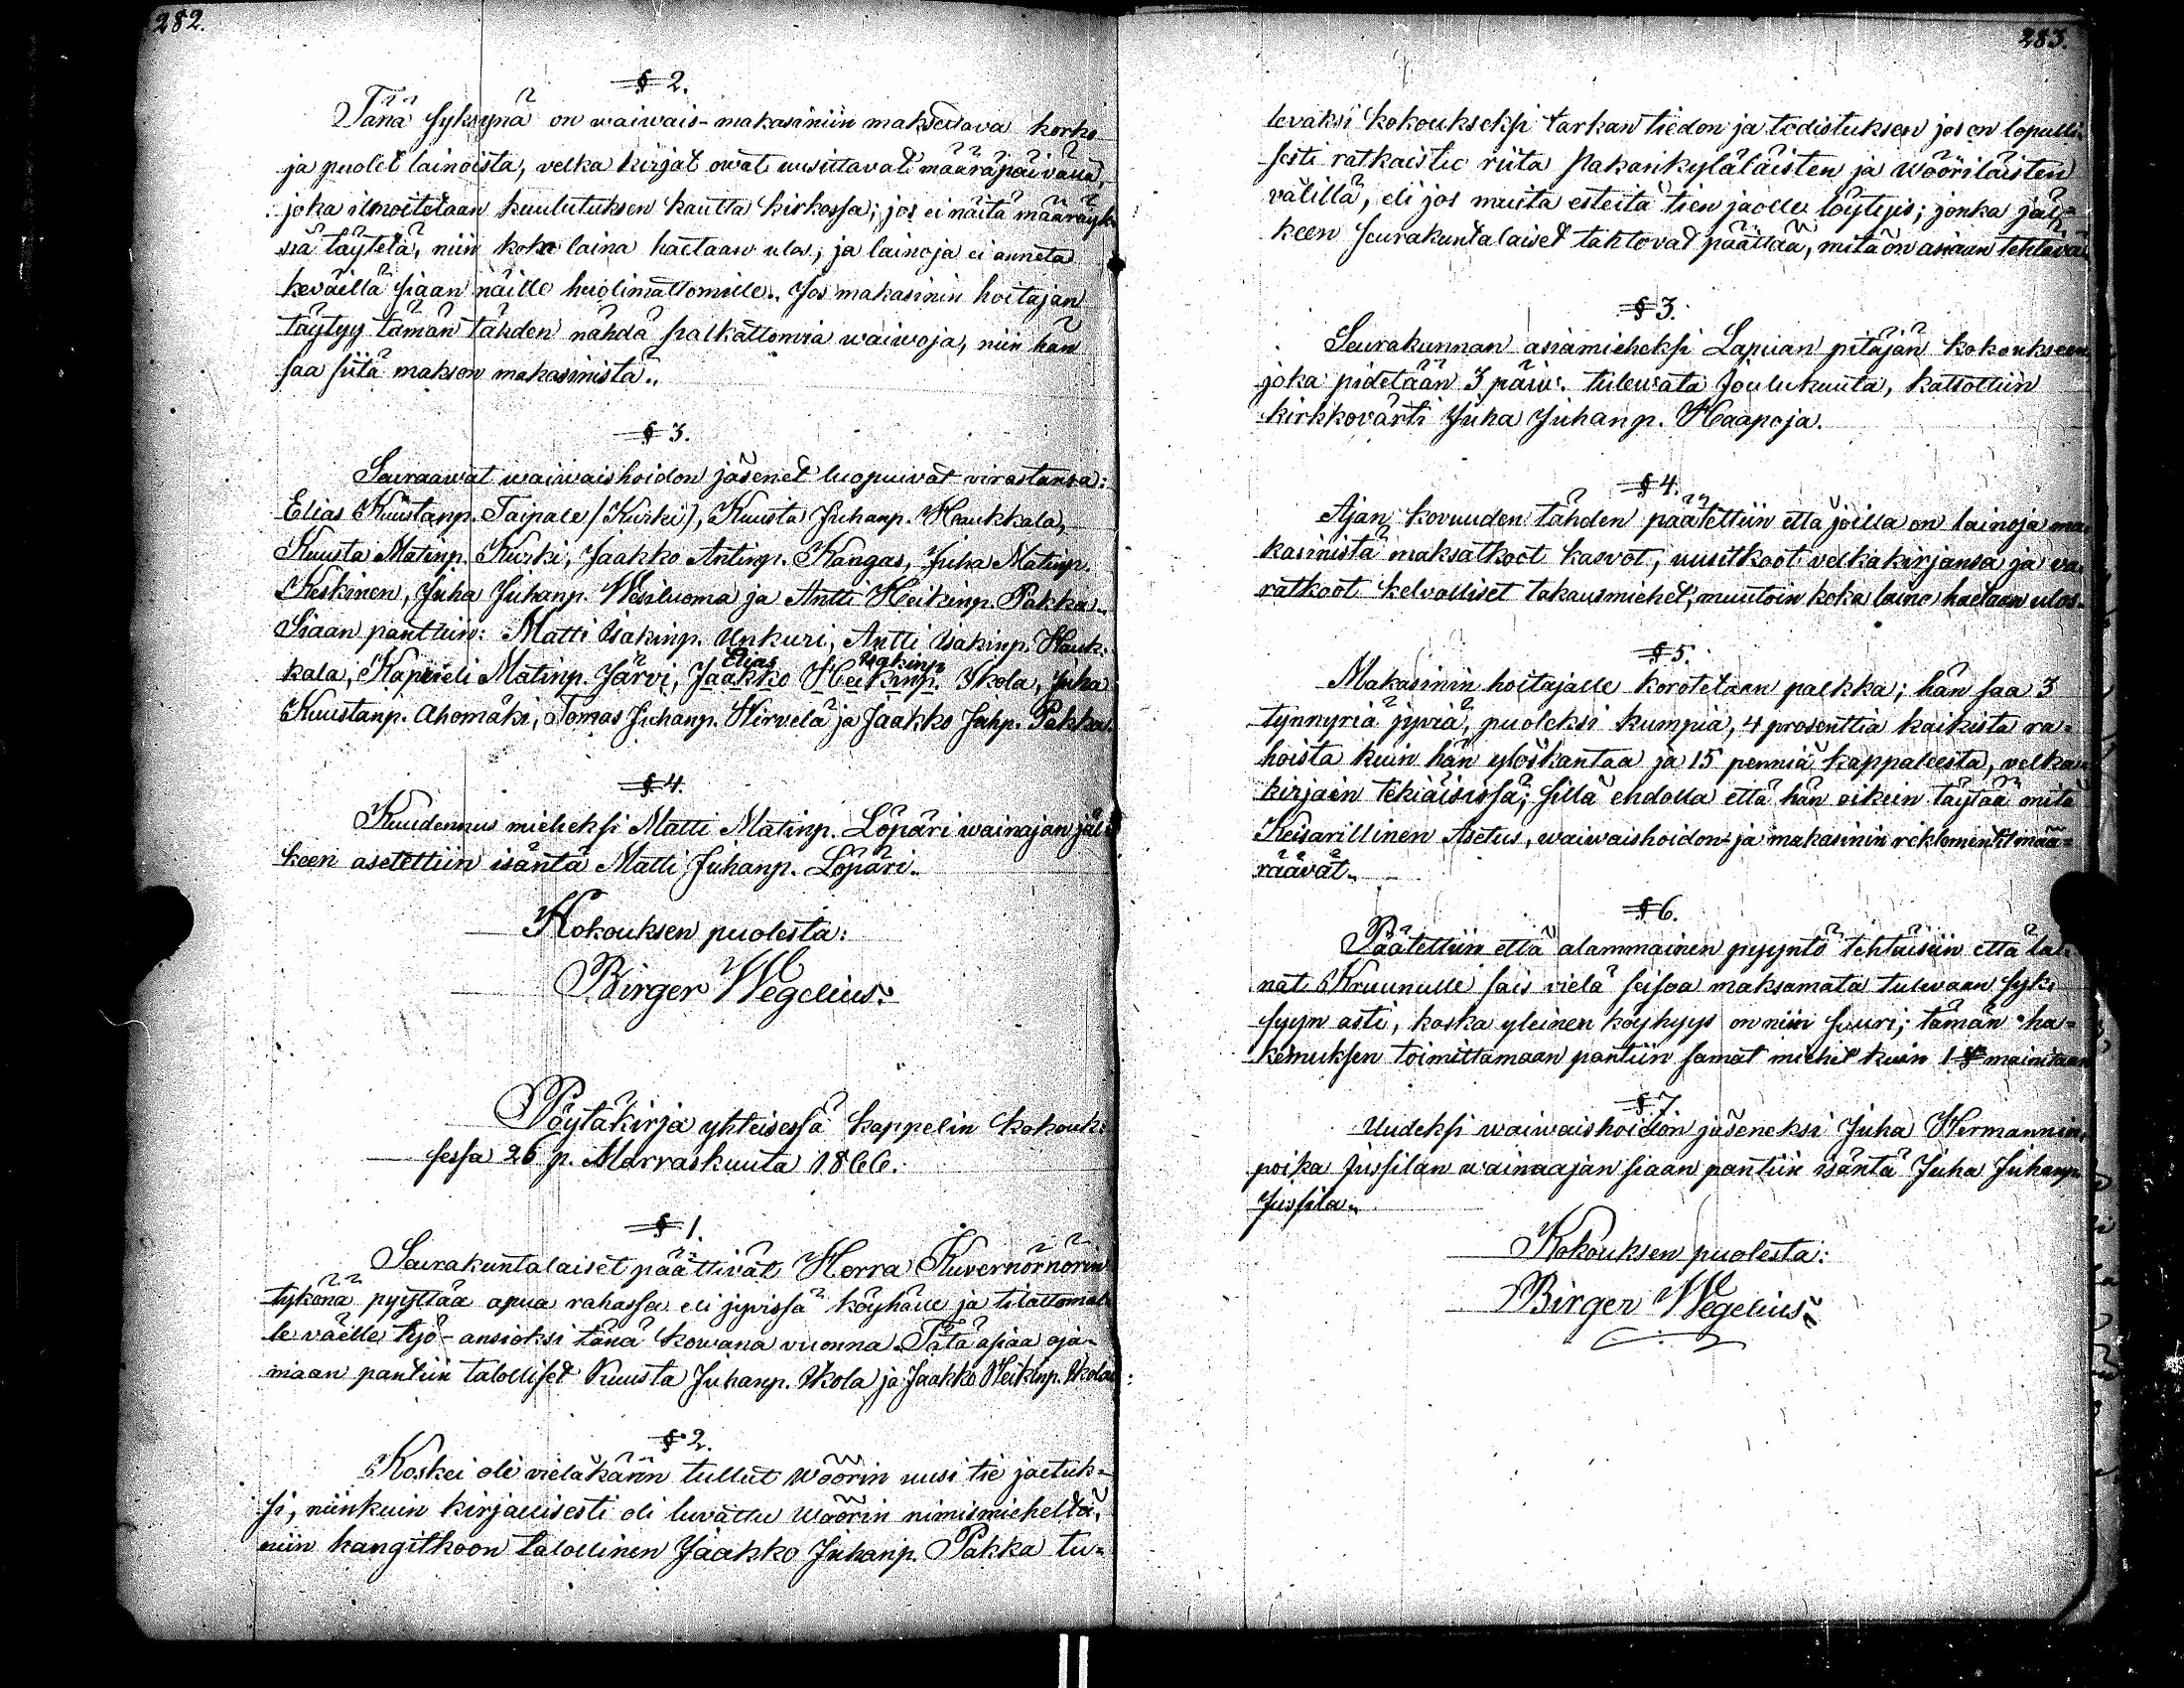 282.
§ 2.
Tänä syksynä on waiwais-makasiniin maksettava korko
ja puolet lainoista, velka kirjat owat uusittavat määräpäivänä,
joka ilmoitetaan kuulutuksen kautta kirkossa; jos ei näitä määräyk-
siä täytetä, niin koko laina haetaan ulos, ja lainoja ei anneta
keväillä siaan näille huolimattomille. Jos makasinin hoitajan
täytyy tämän tähden nähdä palkattomia waiwoja, niin hän
saa siitä makson makasinista.
§ 3.
Seuraawat waiwaishoidon jäsenet luopuivat virastansa:
Elias Kuustanp. Taipale /Kurki/, Kuusta Juhanp. Haukkala,
Kuusta Matinp. Kurki, Jaakko Antinp. Kangas, Juha Matinp.
Keskinen, Juha Juhanp. Wesiluoma ja Antti Heikinp. Pakka.
Siaan pantiin: Matti Isakinp. Unkuri, Antti Isakinp. Hauk-
kala, Kaprieli Matinp. Järvi, Jaakko Heikinp. Ikola, Juha
Elias Isakinp
Kuustanp. Ahomäki, Tomas Juhanp. Hirvelä ja Jaakko Juhp. Pakka.
§ 4.
Kuudennus mieheksi Matti Matinp. Löpäri wainajan jäl-
keen asetettiin isäntä Matti Juhanp. Löpäri.
Kokouksen puolesta:
Birger Wegelius.
Pöytäkirja yhteisessä kappelin kokouk-
sessa 26 p. Marraskuuta 1866.
§ 1.
Seurakuntalaiset päättivät Herra Kuvernörnörin
tykönä pyytää apua rahassa eli jyvissä köyhälle ja tilattomal-
le väelle työ-ansioksi tänä kowana vuonna. Tätä asiaa aja-
maan pantiin talolliset Kuusta Juhanp. Ikola ja Jaakko Heikinp. Ikola:
§ 2.
Koskei oli vieläkään tullut Wöörin uusi tie jaetuk-
si, niinkuin kirjallisesti oli luvattu Wöörin nimismieheltä,
niin hangitkoon talollinen Jaakko Juhanp. Pakka tu-
283.
levaksi kokoukseksi tarkan tiedon ja todistuksen jos on lopulli-
sesti ratkaistu riita Pakankyläläisten ja Wööriläisten
välillä, eli jos muita esteitä tien jaolle löytyis; jonka jäl-
keen seurakuntalaiset tahtovat päättää, mitä on asiaan tehtävä
§ 3.
Seurakunnan asiamieheksi Lapuan pitäjän kokoukseen,
joka pidetään 3 päiv. tulewata Joulukuuta, katsottiin
kirkkovärti Juha Juhanp. Haapoja.
§ 4.
Ajan kovuuden tähden päätettiin että joilla on lainoja ma-
kasinista maksatkoot kasvot, uusitkoot velkakirjansa ja va-
ratkoot kelvolliset takausmiehet, muutoin koka laina haetaan ulos.
§ 5.
Makasinin hoitajalle korotetaan palkka; hän saa 3
tynnyriä jyviä, puoleksi kumpia, 4 prosenttia kaikista ra-
hoista kuin hän ylöskantaa ja 15 penniä kappaleesta, velka-
kirjain tekiäisissä; sillä ehdolla että hän oikein täytää mitä
Keisarillinen Asetus, waiwaishoidon- ja makasinin reklementit mää-
räävät.
§ 6.
Päätettiin että alammainen pyyntö tehtäisiin että lai-
nat Kruunulle sais vielä seisoa maksamata tulewaan syk-
syyn asti, koska yleinen köyhyys on niin suuri; tämän ha-
kemuksen toimittamaan pantiin samat miehet kuin 1 § mainitaan
§ 7
Uudeksi waiwaishoidon jäseneksi Juha Hermannin-
poika Jussilan wainaajan siaan pantiin isäntä Juha Juhanp.
Jussila.
Kokouksen puolesta:
Birger Wegelius.